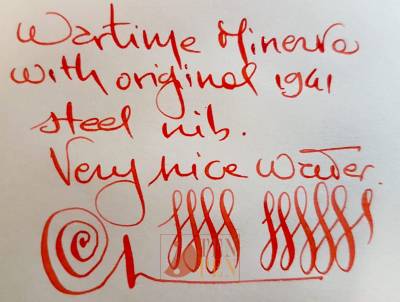 Wartime Minerva
with original 1941
steel nib.
Very nice writer.
TEN
TEN